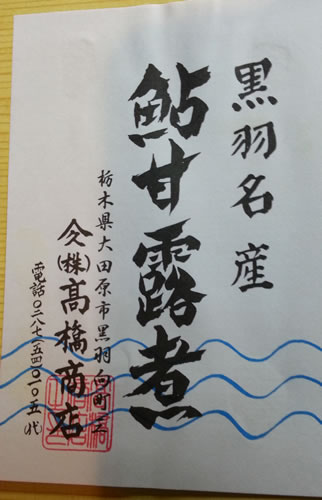 黒羽名産
鮎甘露煮
栃木県大田原市黒羽向町三
㈱髙橋商店
電話〇二八七-五四-〇一〇五(代)